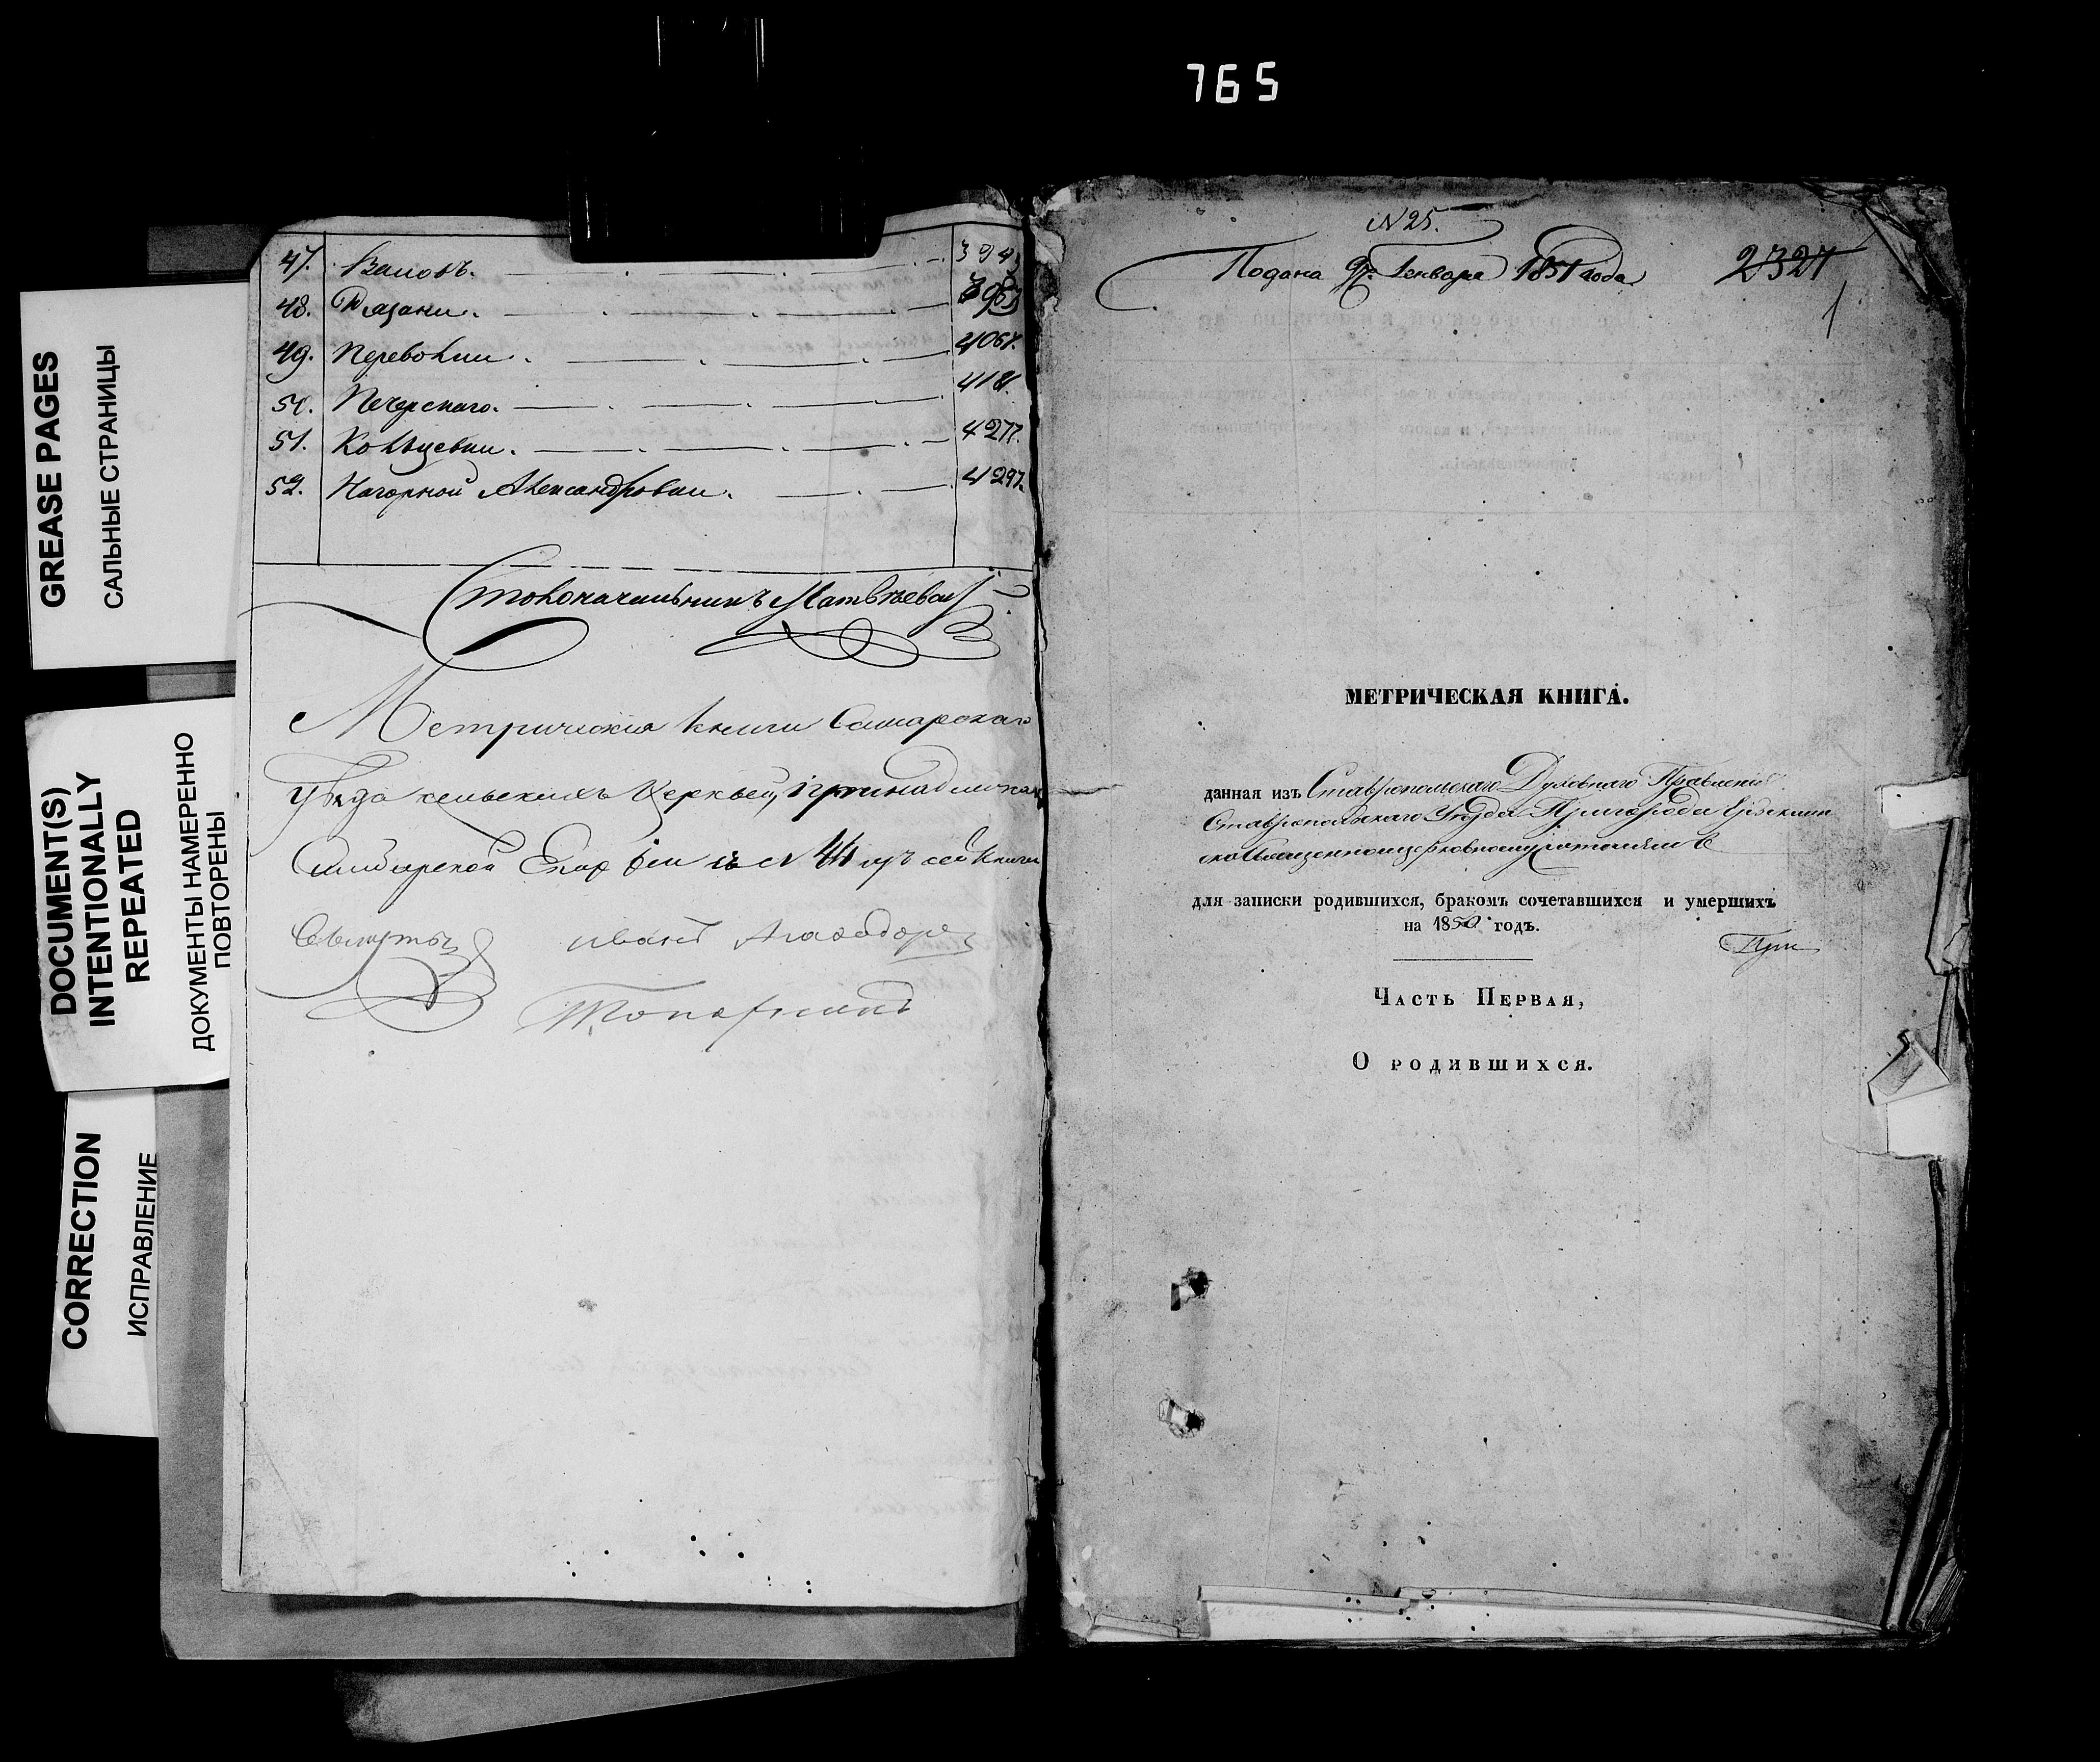 765
GREASE PAGES
САЛЬНЫЕ СТРАНИЦЫ
DOCUMENT(S)
INTENTIONALLY
REPEATED
ДОКУМЕНТЫ НАМЕРЕННО
ПОВТОРЕНЫ
CORRECTION
ИСПРАВЛЕНИЕ
47. Валовъ.
48. Рязани.
49. Переволки. 4067.
50. Печерскаго. 418
51. Кольцевки. 4277.
52. Нагорной Александровки. 4297.
Столоначальникъ Матвѣевскій
Метрическія книги Самарскаго
Уѣзда сельскихъ Церквей, принадлежа
Симбирской Епархіи съ № 44 изъ сей Книги
Иванъ
N 25.
Подана Генваря 1851 года
2327
1
МЕТРИЧЕСКАЯ КНИГА.
данная изъ Ставропольскаго Духовнаго Правленія
Ставропольскаго Уѣзда Пригорода Ерыклин
ска Священноцерковнослужителямъ
для записки родившихся, бракомъ сочетавшихся и умершихъ
на 1850 годъ.
Часть Первая,
О родившихся.